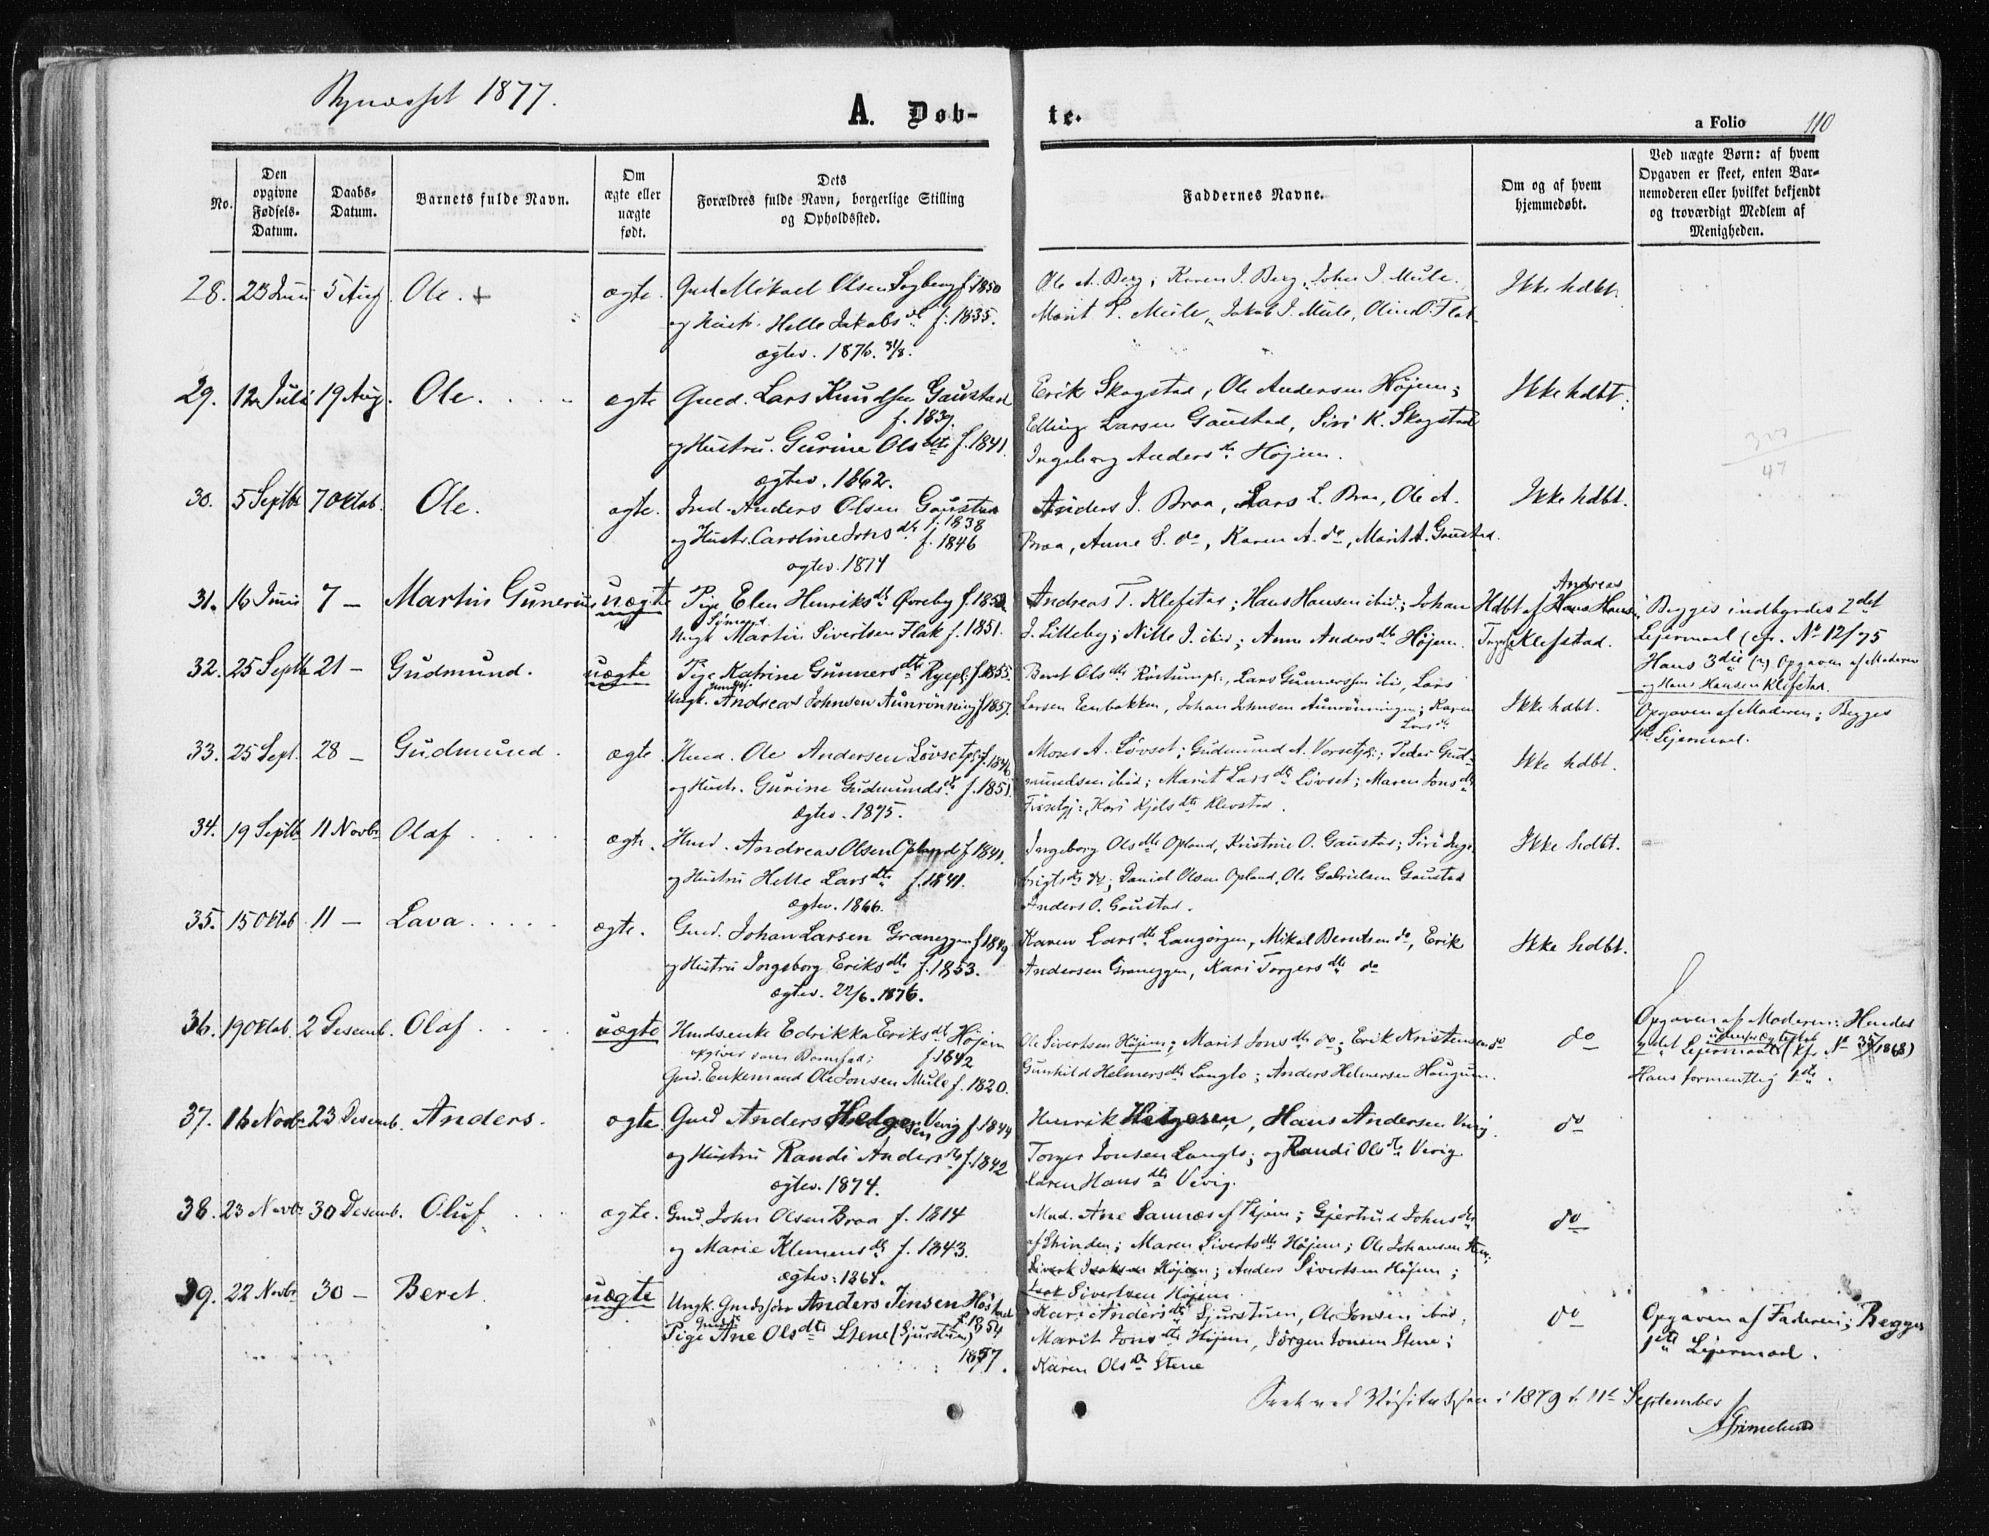 Bynæsset 1877.
A. Døb-
te.
a Folio 110
No.
Den opgivne Fødsels-Datum.
Daabs-Datum.
Barnets fulde Navn.
Om ægte eller uægte født.
Dets Forældres fulde Navn, borgerlige Stilling og Opholdssted.
Faddernes Navne.
Om og af hvem hjemmedøbt.
Ved uægte Børn: af hvem Opgaven er skeet, enten Barnemoderen eller hvilket bekjendt og troværdigt Medlem af Menigheden.
28. 23 Juni 5 Aug Ole. + ægte. Gmd Mikael Olsen f. 1850
og Hustr. Helle Jakobsdt f. 1835.
ægtev. 1876. 31/8.
Ole A. Berg; Karen J. Berg, John J. Mule,
Marit L. Mule, Jakob J. Mule, Oline O. Flak
Ikke hdbt.
29. 12 Juli 19 Aug. Ole. ægte Gmd. Lars Knudsen Gaustad
f. 1839
og Hustru. Gurine Olsdtr f. 1841.
ægtev. 1862.
Erik Skogstad, Ole Andersen Højem;
Elling Larsen Gaustad, Siri K. Skogstad
Ingeborg Andersdtr Højem.
Ikke hdbt.
30. 5 Septbr 7 Oktob. Ole. ægte. Ind. Anders Olsen Gaustad
f. 1838
og Hustr. Caroline Jonsdtr f. 1846
ægtev. 1874
Anders J. Braa, Lars L. Braa, Ole A.
Braa, Anne S. do, Karen A. do, Marit A. Gaustad.
Ikke hdbt.
31. 16 Juni 7 — Martin Gunerius uægte Pige Elen Henriksdt Øreby f. 1852
Ungk. Martin Sivertsen Flak f. 1851.
Andreas T. Klefstad; Hans Hansen ibid; Johan
J. Litleby; Nille J. ibid; Anne Andersdtr Højem.
Hdbt af Andreas Hans Hansen
Klefstad.
Begges indbyrdes 2det
Lejermaal (cfr. No 12/75
Hans 3die (?) Opgaven af Moderen
og Hans Hansen Klefstad.
32. 25 Septbr 21 — Gudmund. uægte Pige Katrine Gunnersdtr Ryepl. f. 1855.
Ungk. Andreas Johnsen Aunrønning f. 1857.
Beret Olsdtr Rostumpl., Lars Gunnerssen ibid, Lars
Larsen Eenbakken, Johan Johnsen Aunrønningen; Karen
Larsdtr
Ikke hdbt.
Opgaven af Moderen; Begges
1ste Lejermaal.
33. 25 Sept. 28 — Gudmund. ægte Huusmd. Ole Andersen Løvsetpl. f. 1846
og Hustr. Gurine Gudmundsdt f. 1851.
ægtev. 1875.
Mons A. Løvset; Gudmund A. Vorsetpl.; Peder Gud-
mundsen ibid; Marit Larsdtr Løvset; Maren Jonsdtr
Kari Kjelsdtr Klevstad.
Ikke hdbt.
34. 19 Septbr 11 Novbr Olaf ægte. Husmd. Andreas Olsen Opland f. 1841.
og Hustru Helle Larsdtr f. 1841.
ægtev. 1866.
Ingeborg Olsdtr Opland, Kristine O. Gaustad; Siri Inge-
brigtsdtr do; Daniel Olsen Opland, Ole Gabrielsen Gaustad
Anders O. Gaustad.
Ikke hdbt.
35. 15 Oktob 11 — Lava. ægte. Gmd. Johan Larsen Graneggen f. 1849
og Hustru Ingeborg Eriksdtr f. 1853.
ægtev. 22/6. 1876.
Karen Larsdtr Langørgen, Mikal Berntsen do, Erik
Andersen Graneggen, Kari Torgersdtr do
Ikke hdbt.
36. 19 Oktob. 2 Desemb. Olaf uægte Husmdsenke Edrikka Eriksdt Højem
opgiver som Barnefad: f. 1842
Gmd. Enkemand Ole Jonsen Mule f. 1820.
Ole Sivertsen Højem; Marit Jonsdtr do; Erik Kristensen do
Gunhild Helmersdtr Langlo; Anders Helmersen Haugum.
do
Opgaven af Moderen; Hendes
2det Lejermaal udenfor Ægteskab (kfr. No 35/1868)
Hans formentlig 1ste.
37. 16 Novbr 23 Desemb. Anders. ægte Gmd Anders Helgesen Vevig f. 1844
og Hustru Randi Andersdtr f. 1842
ægtev. 1874.
Henrik Helgesen, Hans Andersen Vevig.
Torger Jonsen Langlo; og Randi Olsdtr Vevig
Karen Hansdtr Vevig.
do
38. 23 Novbr 30 Desemb. Oluf ægte. Gmd. John Olsen Braa f. 1814
og Marie Klemensdtr f. 1843.
ægtev: 1864.
Mad. Ane Sannes af Thjem; Gjertrud Johnsdtr
af Strinden; Maren Sivertsdtr Højem; Ole Johansen
Sivert Isaksen Højem; Anders Sivertsen Højem;
Isak Sivertsen Højem.
do
39. 22 Novbr 30 — Beret uægte Ungk. Gmdssøn Anders Jensen
f. 1854
Pige Ane Olsdtr Stene (Gjurstuen)
1857.
Kari Andersdtr Gjurstuen, Ole Jonsen ibid;
Marit Jonsdtr Højem, Jørgen Jonsen Stene;
Karen Olsdtr Stene
do
Opgaven af Faderen; Begges
1ste Lejermaal.
317
47
Seet ved Visitatsen i 1879 d. 11te September
A Grimelund